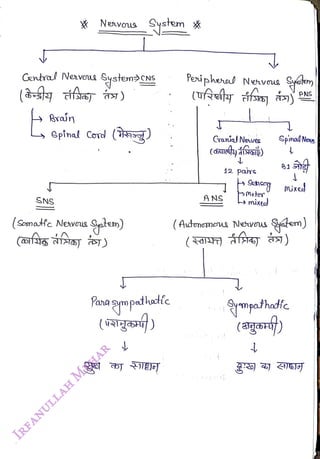 Nervous System
Central Nervous System → CNS
(केन्द्रीय तंत्रिका तंत्र)
→ Brain
→ Spinal Cord (मेरूरज्जु)
Peripheral Nervous System
(परिधीय तंत्रिका तंत्र) PNS
Cranial Nerves
12 pairs
→ Sensory
→ Motor
→ mixed
Spinal Nerves
31 जोड़ी
mixed
SNS
(Somatic Nervous System)
(कायिक तंत्रिका तंत्र)
ANS
(Autonomous Nervous System)
(स्वायत्त तंत्रिका तंत्र)
Parasympathatic
(परानुकम्पी)
सुख का साथी
Sympathatic
(अनुकम्पी)
दुःख का साथी
IRFANULLAH MAZHAR